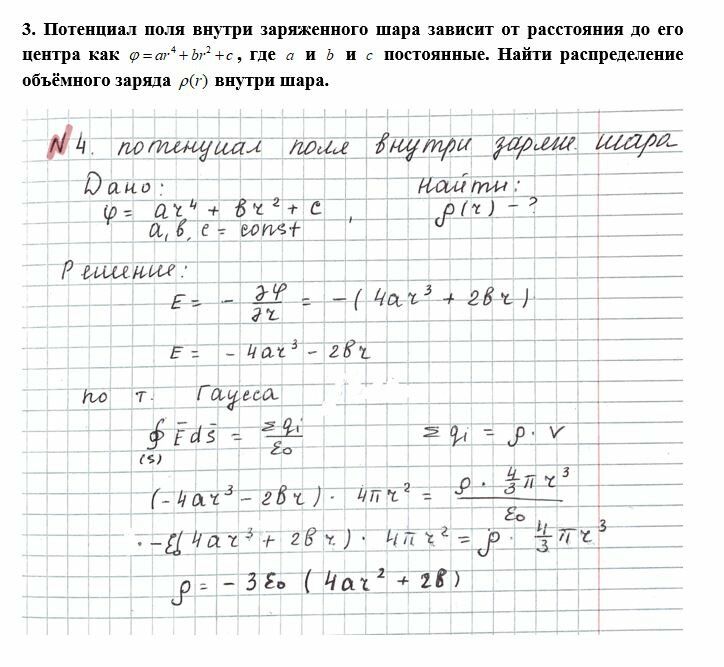 3. Потенциал поля внутри заряженного шара зависит от расстояния до его
центра как φ=ar⁴+br²+c, где a и b и c постоянные. Найти распределение
объёмного заряда ρ(r) внутри шара.
N 4. потенциал поля внутри заряж. шара
Дано: Найти:
φ = ar⁴ + br² + c , ρ(r) - ?
a, b, c = const
Решение:
E = - ∂φ/∂r = -(4ar³ + 2br)
E = - 4ar³ - 2br
по т. Гауеса
∮(S) E̅ds̅ = Σqi/ε₀ Σqi = ρ · V
(-4ar³ - 2br) · 4πr² = ρ · 4/3 πr³ / ε₀
-ε₀(4ar³ + 2br) · 4πr² = ρ · 4/3 πr³
ρ = - 3ε₀ (4ar² + 2b)